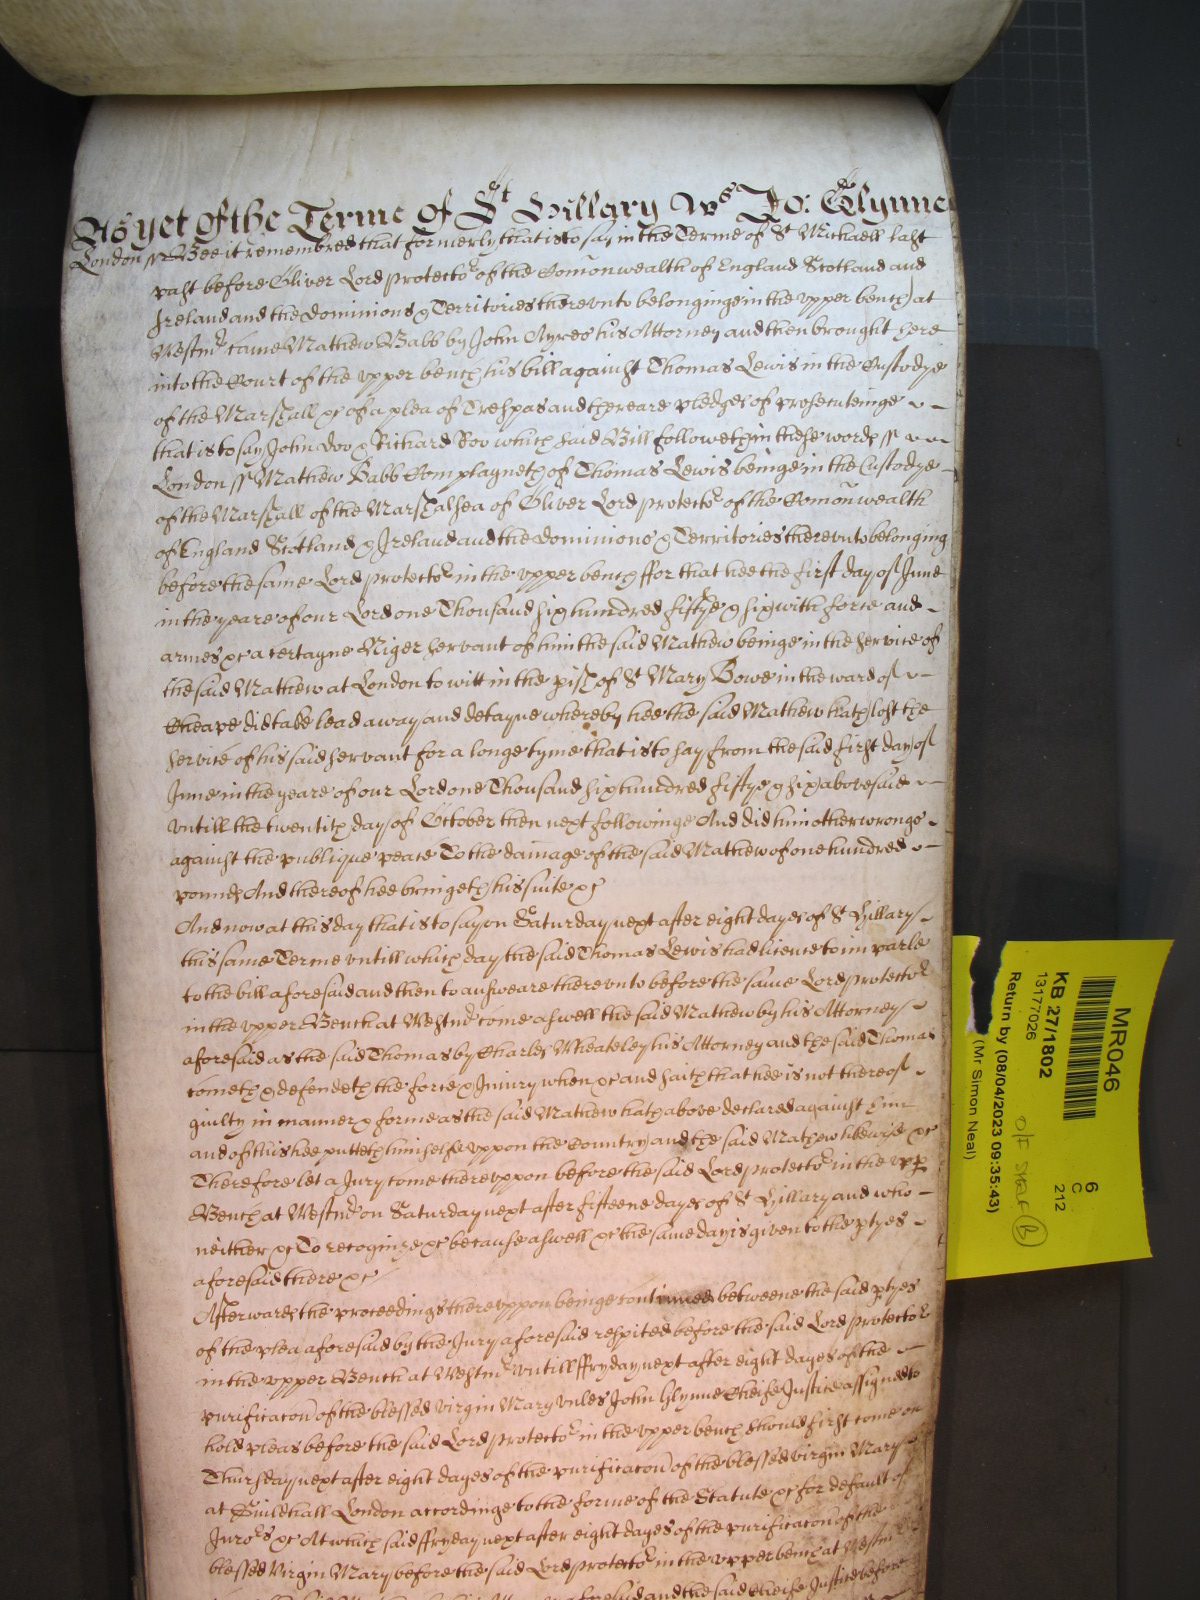 As yet of the Terme of St Hillary Ws Jo: Glynne
London ss Bee it remembred that formerly that is to say in the Terme of St Michaell last
past before Oliver Lord protector of the Comonwealth of England Scotland and
Ireland and the dominions & Territories therevnto belonginge in the vpper bench at
Westmr came Mathew Babb by John Ayres his Attorney and then brought here
into the Court of the vpper bench his bill against Thomas Lewis in the Custodye
of the Marshall &c of a plea of Trespas and there are pledges of prosecuteinge
that is to say John doo & Richard Roo which said Bill followeth in these wordes ss
London ss Mathew Babb Complayneth of Thomas Lewis beinge in the Custodye
of the Marshall of the Marshalsea of Oliver Lord protector of the Comonwealth
of England Scotland & Ireland and the dominions & Territories therevnto belonging
before the same Lord protector in the vpper bench ffor that hee the first day of June
in the yeare of our Lord one Thousand six hundred fiftye & six with force and
armes &c a certayne Niger servant of him the said Mathew beinge in the service of
the said Mathew at London to witt in the pish of St Mary Bowe in the ward of
Cheape did take lead away and detayne whereby hee the said Mathew hath lost the
service of his said servant for a longe tyme that is to say from the said first day of
June in the yeare of our Lord one Thousand six hundred fiftye & six abovesaid
vntill the twentith day of October then next followinge And did him other wronge
against the publique peace To the damage of the said Mathew of one hundred
pounds And thereof hee bringeth his suite &c
And now at this day that is to say on Saturday next after eight dayes of St Hillary
this same Terme vntill which day the said Thomas Lewis had licence to imparle
to the bill aforesaid and then to answeare therevnto before the same Lord protector
in the vpper Bench at Westmr come aswell the said Mathew by his Attorney
aforesaid as the said Thomas by Charles Wheateley his Attorney and the said Thomas
cometh & defendeth the force & Iniury when &c and saith that hee is not thereof
guilty in manner & forme as the said Mathew hath above declared against him
and of this hee putteth himselfe vppon the Country and the said Mathew likewise &c
Therefore let a Jury come therevppon before the said Lord protector in the vpp
Bench at Westmr on Saturday next after fifteene dayes of St Hillary and who
neither &c To recognize &c because aswell &c the same day is given to the ptyes
aforesaid there &c
Afterwards the proceedings therevppon beinge continued betweene the said ptyes
of the plea aforesaid by the Jury aforesaid respited before the said Lord protector
in the vpper Bench at Westmr vntill ffryday next after eight dayes of the
purificacon of the blessed virgin Mary vnles John Glynne Cheife Justice assigned to
hold pleas before the said Lord protector in the vpper bench should first come on
Thursday next after eight dayes of the purificacon of the blessed virgin Mary
at Guildhall London accordinge to the forme of the Statute &c for default of
Jurors &c At which said ffryday next after eight dayes of the purificacon of the
blessed Virgin Mary before the said Lord protector in the vpper bench at Westmr
aforesaid and the said Cheife Justice before
MR046
6
C
212
KB 27/1802
13177026
Return by (08/04/2023 09:35:43)
(Mr Simon Neal)